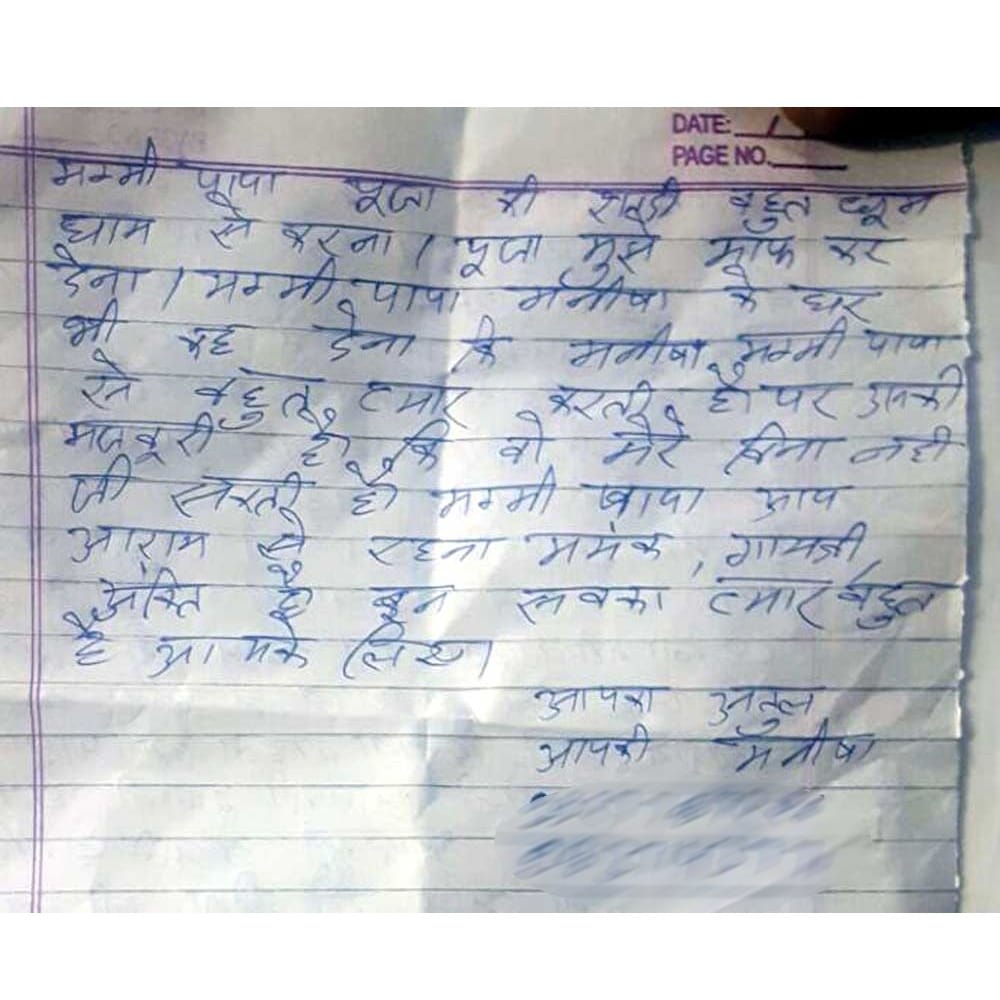 DATE: /
PAGE NO.
मम्मी पापा पूजा की शादी बहुत धूम
धाम से करना। पूजा मुझे माफ कर
देना। मम्मी पापा मनीषा के घर
भी कह देना कि मनीषा मम्मी पापा
से बहुत प्यार करती है पर उसकी
मजबूरी है कि वो मेरे बिना नही
जी सकती है मम्मी पापा आप
आराम से रहना
है इन सबका प्यार बहुत
है आपके लिए।
आपका अतुल
आपकी मनीषा